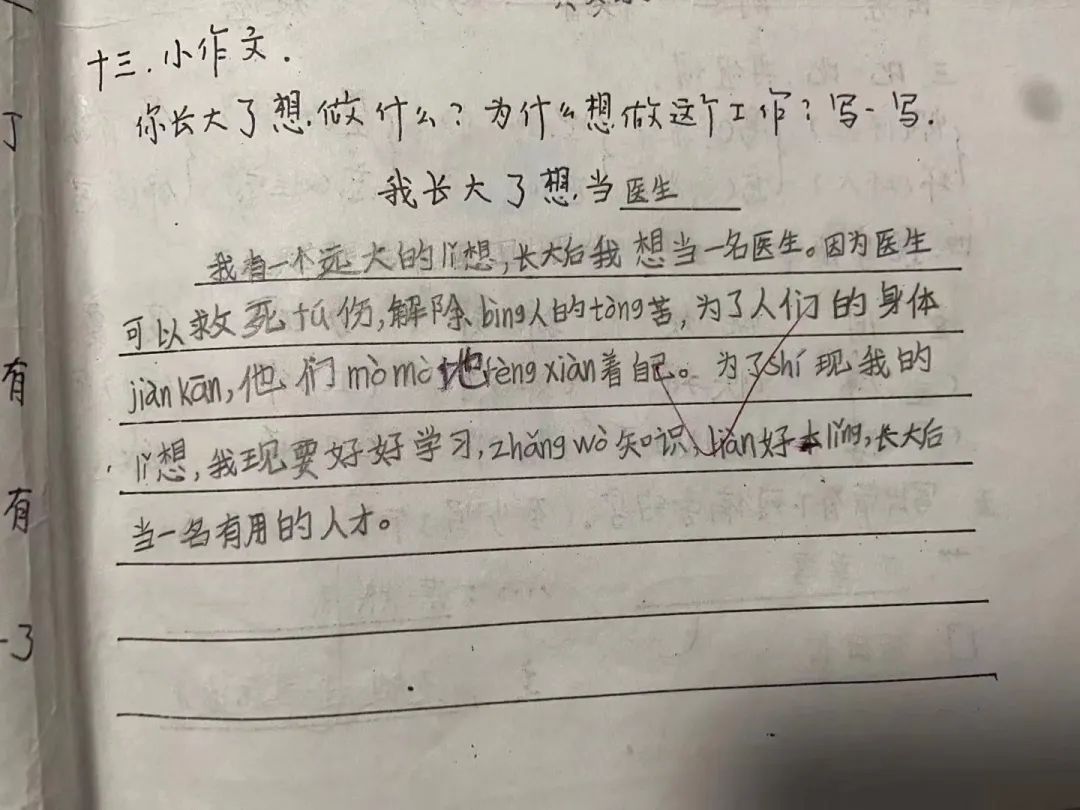 十三.小作文.
你长大了想做什么?为什么想做这个工作?写一写.
我长大了想当医生
我有一个远大的lǐ想,长大后我想当一名医生。因为医生
可以救死fú伤,解除bìng人的tòng苦,为了人们的身体
jiàn kān,他们mò mò地fèng xiàn着自己。为了shí现我的
lǐ想,我现要好好学习,zhǎng wò知识,liàn好本lǐng,长大后
当一名有用的人才。
丁
有
有
-3